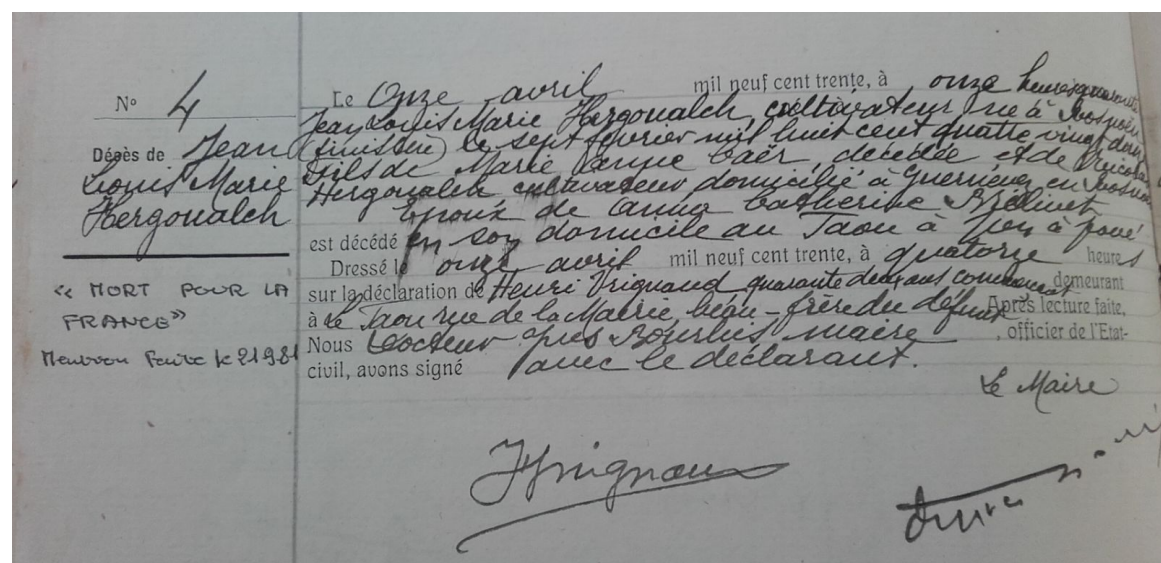 N° 4
Dépès de Jean
Louis Marie
Hergoualch
« MORT POUR LA
FRANCE »
Mention faite le 21981
Le Onze avril mil neuf cent trente, à onze heures quarante
Jean Louis Marie Hergoualch, cultivateur né à
(Finistère) le sept février mil huit cent quatre vingt
Fils de Marie Jeanne Caër, décédée et de Nicolas
Hergoualch cultivateur domicilié à Guernevez en
Epoux de Anna Catherine
est décédé en son domicile au Taou à
Dressé le onze avril mil neuf cent trente, à quatorze heures
sur la déclaration de Henri Vrignaud quarante deux ans demeurant
à Le Taou rue de la Mairie, beau-frère du défunt Après lecture faite,
Nous Docteur Yves Bourhis, maire , officier de l'Etat-
civil, avons signé avec le déclarant.
Le Maire